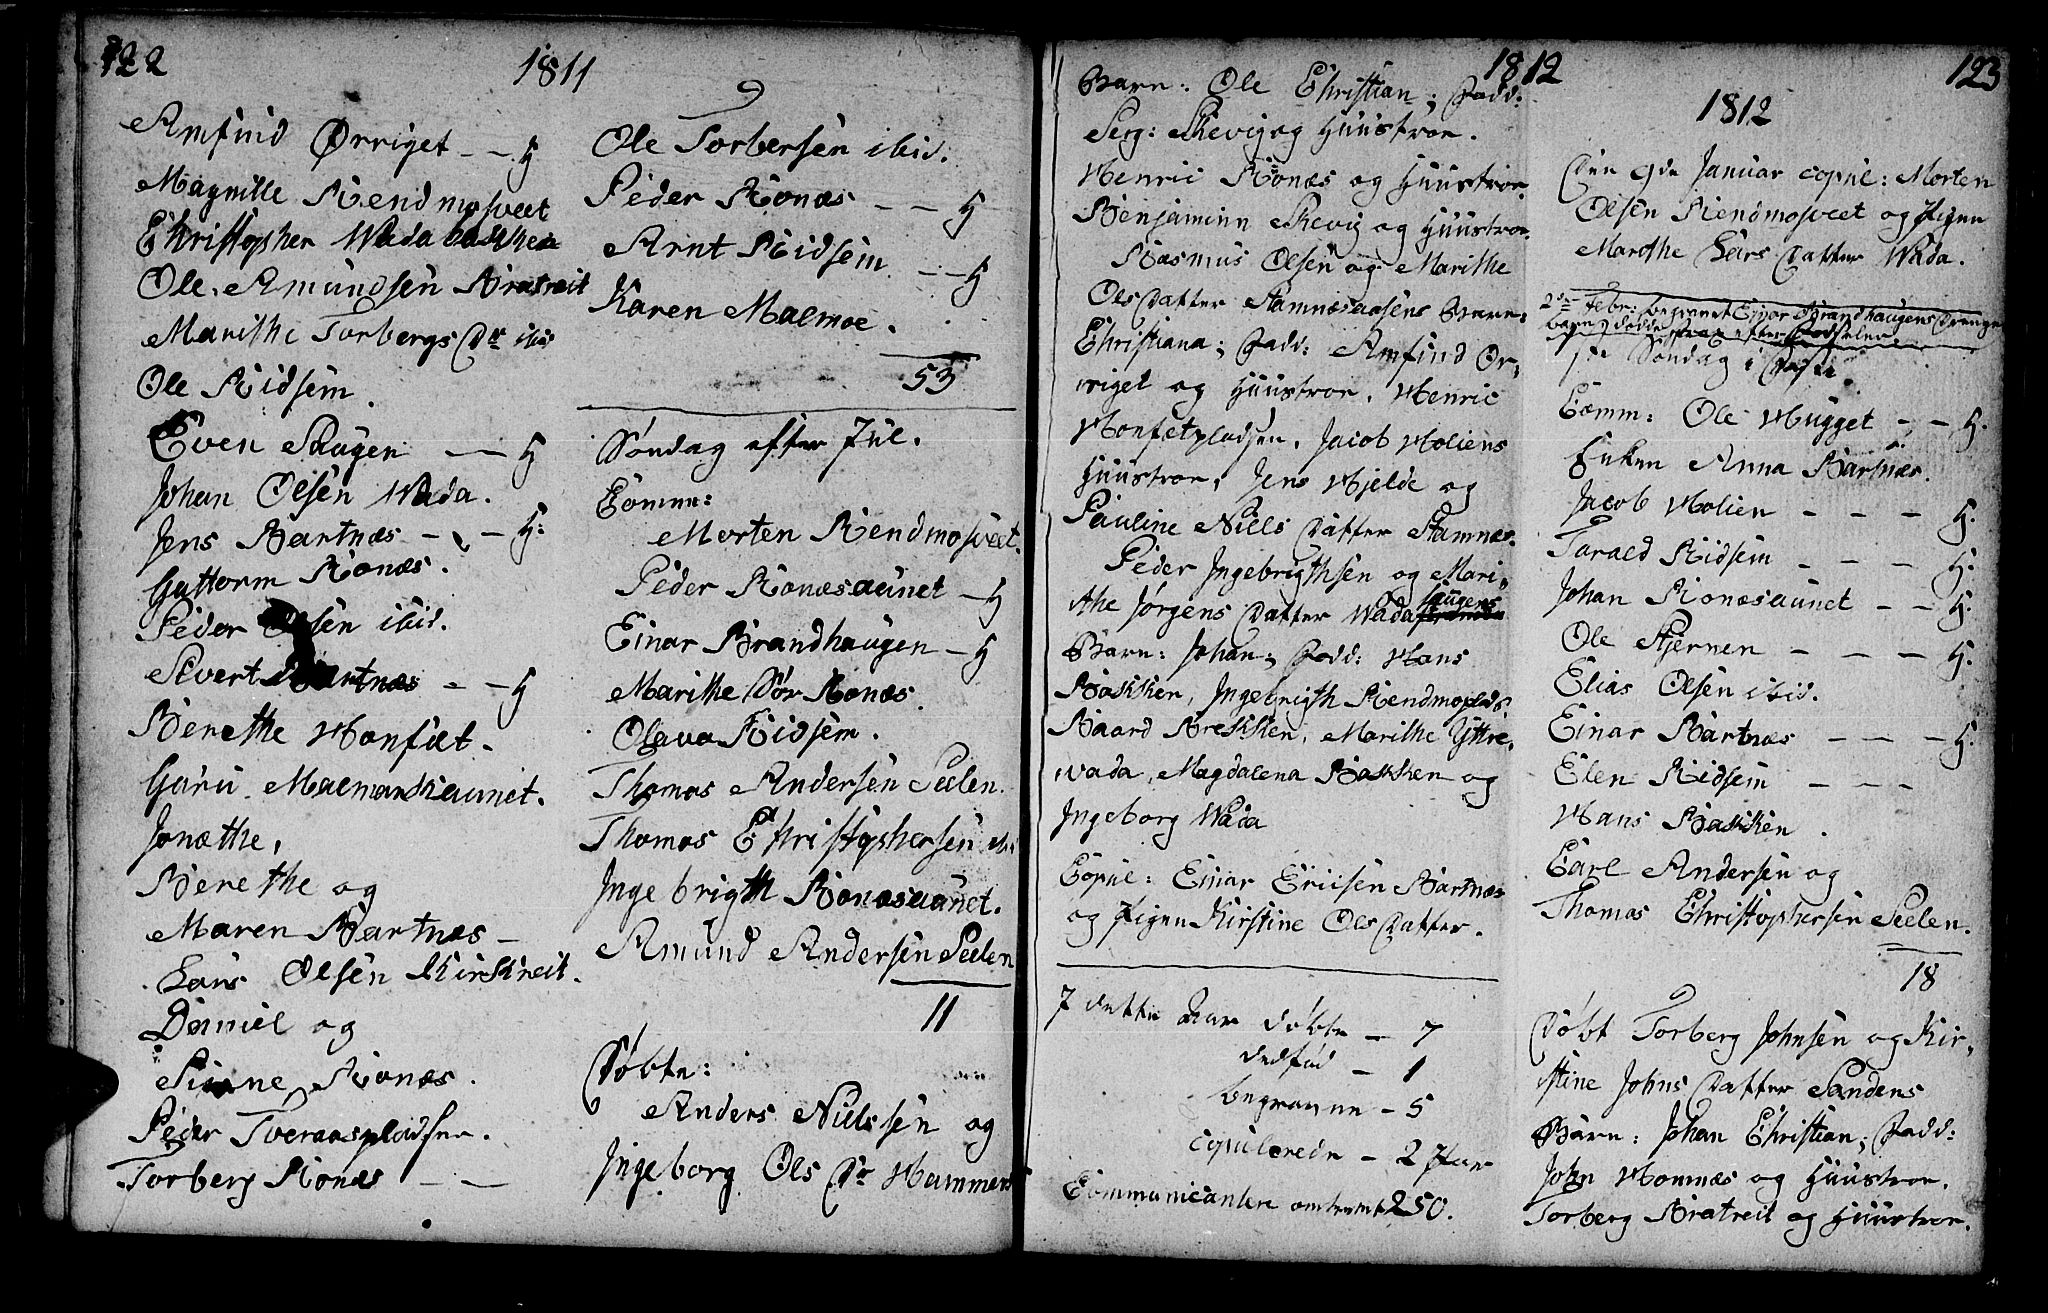 122
1811
Arnfind Ørriget – – H
Magnille Rendmosveet
Christopher Wadabakken
Ole Amundsen Bratreit
Marithe Torbergs Dr ibid
Ole Ridsem.
Even Skagen – – H
Johan Olsen Wada.
Jens Bartnæs – – H:
Guttorm Ronæs.
Peder Olsen ibid.
Sivert Bartnæs – – H
Berethe Honfæt.
Guru Malmarksaunet.
Jonæthe,
Berethe og
Maren Bartnæs –
Lars Olsen Kirkreit.
Daniel og
Sirene Ronæs.
Peder Tveraaspladsen.
Torberg Ronæs – –
Ole Torbersen ibid.
Peder Ronæs – – H
Arnt Ridsem – – H
Karen Malmoe.
53
Søndag efter Jul.
Comm:
Morten Rendmosveet.
Peder Ronæsaunet – H
Einar Brandhaugen – H
Marithe Sør Ronæs.
Olava Ridsem.
Thomas Andersen Seelen.
Thomas Christophersen ibi
Ingebrigth Ronæsaunet.
Amund Andersen Seelen
11
Døbte:
Anders Nillssen og
Ingeborg Ols Dr Hammers
1812
Barn: Ole Christian; Fadd:
Serg: Skevig og Huustroe.
Henric Ronæs og Huustroe
Benjaminn Skevig og Huustroe.
Rasmus Olsen og Marithe
Ols Datter Stamnesaasens Barn:
Christiana; Fadd: Arnfind Ør-
riget og Huustroe, Henric
Honfetpladsen, Jacob Holiens
Huustroe, Jens Hjelde og
Pauline Niels Datter Stamnæs.
Peder Ingebrigthsen og Mari-
the Jørgens Datter Wadahaugens
Barn: Johan; Fadd: Hans
Bakken, Ingebrigth Rendmoplads
Baard Brekken, Marithe Yttre-
wada, Magdalena Bakken og
Ingeborg Wada
Copul: Einar Ericsen Bartnæs
og Pigen Kirstine Ols Datter.
I dette Aar døbte – 7
dødfød – 1
begravne – 5
copulerede – 2 Par
Communicantere omtrent 250.
123
1812
Den 9de Januar copul: Morten
Olsen Rendmosveet og Pigen
Marethe Lars Datter Wada.
2den Febr: begravet Einar Brandhaugens Drenge
barn, døde strax efter Fødselen.
1te Søndag i Faste.
Comm: Ole Hugget – – H.
Enken Anna Bartnæs.
Jacob Holien – – – H.
Tarald Ridsem – – – H.
Johan Ronæsaunet – – H.
Ole Stjernen – – – H.
Elias Olsen ibid.
Einar Bartnæs – – – H.
Elen Ridsem – – –
Hans Bakken.
Carl Andersen og
Thomas Christophersen Seelen.
18
Døbt Torberg Johnsen og Kir-
stine Johns Datter Sandens
Barn: Johan Christian; Fadd:
John Homnæs og Huustroe.
Torberg Bratreit og Huustroe.